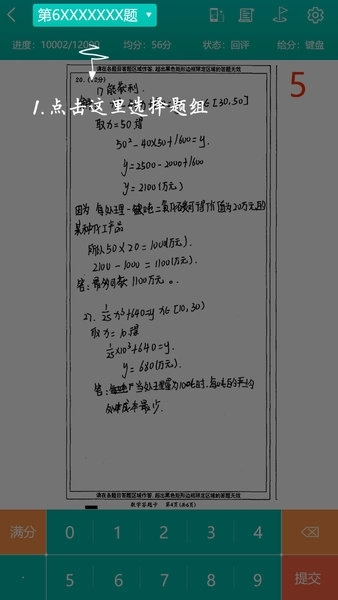 第6XXXXXXX题
进度：10002/12000 均分：56分 状态：回评 给分：键盘
请在各题目答题区域作答，超出黑色矩形边框限定区域的答题无效
20. (12分)
5
1.点击这里选择题组
1) 能获利.
∈[30,50]
取x=50得
50²-40×50+1600=y.
y=2500-2000+1600
y=2100(万元)
因为
某种化工产品
所以50×20=1000(万元).
2100-1000=1100(万元).
答：1100万元。
2). 1/25 x³+640=y x∈[10,30)
取x=10得
1/25×10³+640=y.
y=680(万元).
答：当处理量为100吨时,
处理成本最少.
请在各题目答题区域作答，超出黑色矩形边框限定区域的答题无效
数学答题卡 第4页(共6页)
满分 0 1 2 3 4
· 5 6 7 8 9 提交